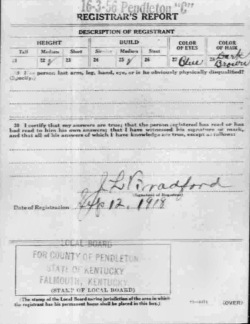 16-3-56 Pendleton "C"
REGISTRAR'S REPORT
DESCRIPTION OF REGISTRANT
HEIGHT BUILD COLOR OF EYES COLOR OF HAIR
Tall Medium Short Slender Medium Stout
Blue Dark Brown
person lost arm, leg, hand, eye, or is he obviously physically disqualified?
(Specify.)
30 I certify that my answers are true; that the person registered has read or has
had read to him his own answers; that I have witnessed his signature or mark,
and that all of his answers of which I have knowledge are true, except as follows:
J. L. Bradford
Date of Registration Sep 12, 1918
LOCAL BOARD
FOR COUNTY OF PENDLETON
STATE OF KENTUCKY
FALMOUTH, KENTUCKY
(STAMP OF LOCAL BOARD)
(The stamp of the Local Board having jurisdiction of the area in which
the registrant has his permanent home shall be placed in this box.)
(OVER)